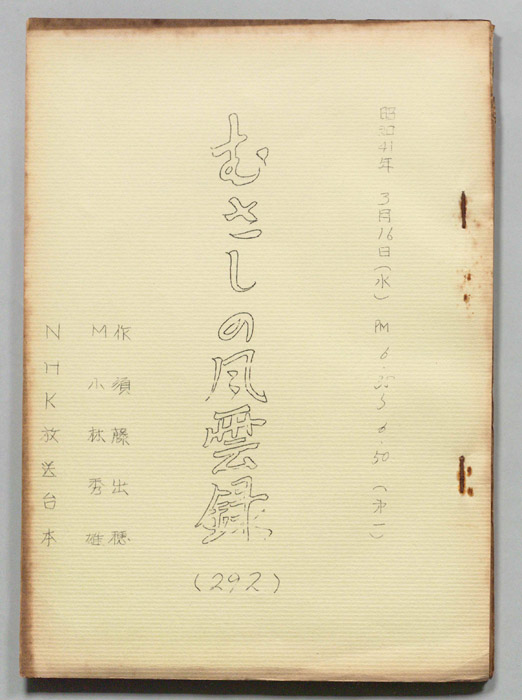 昭和41年 3月16日(水) PM 6.35〜6.50 (第一)
むさしの風雲録
(292)
作 須藤出穂
M 小林秀雄
NHK放送台本